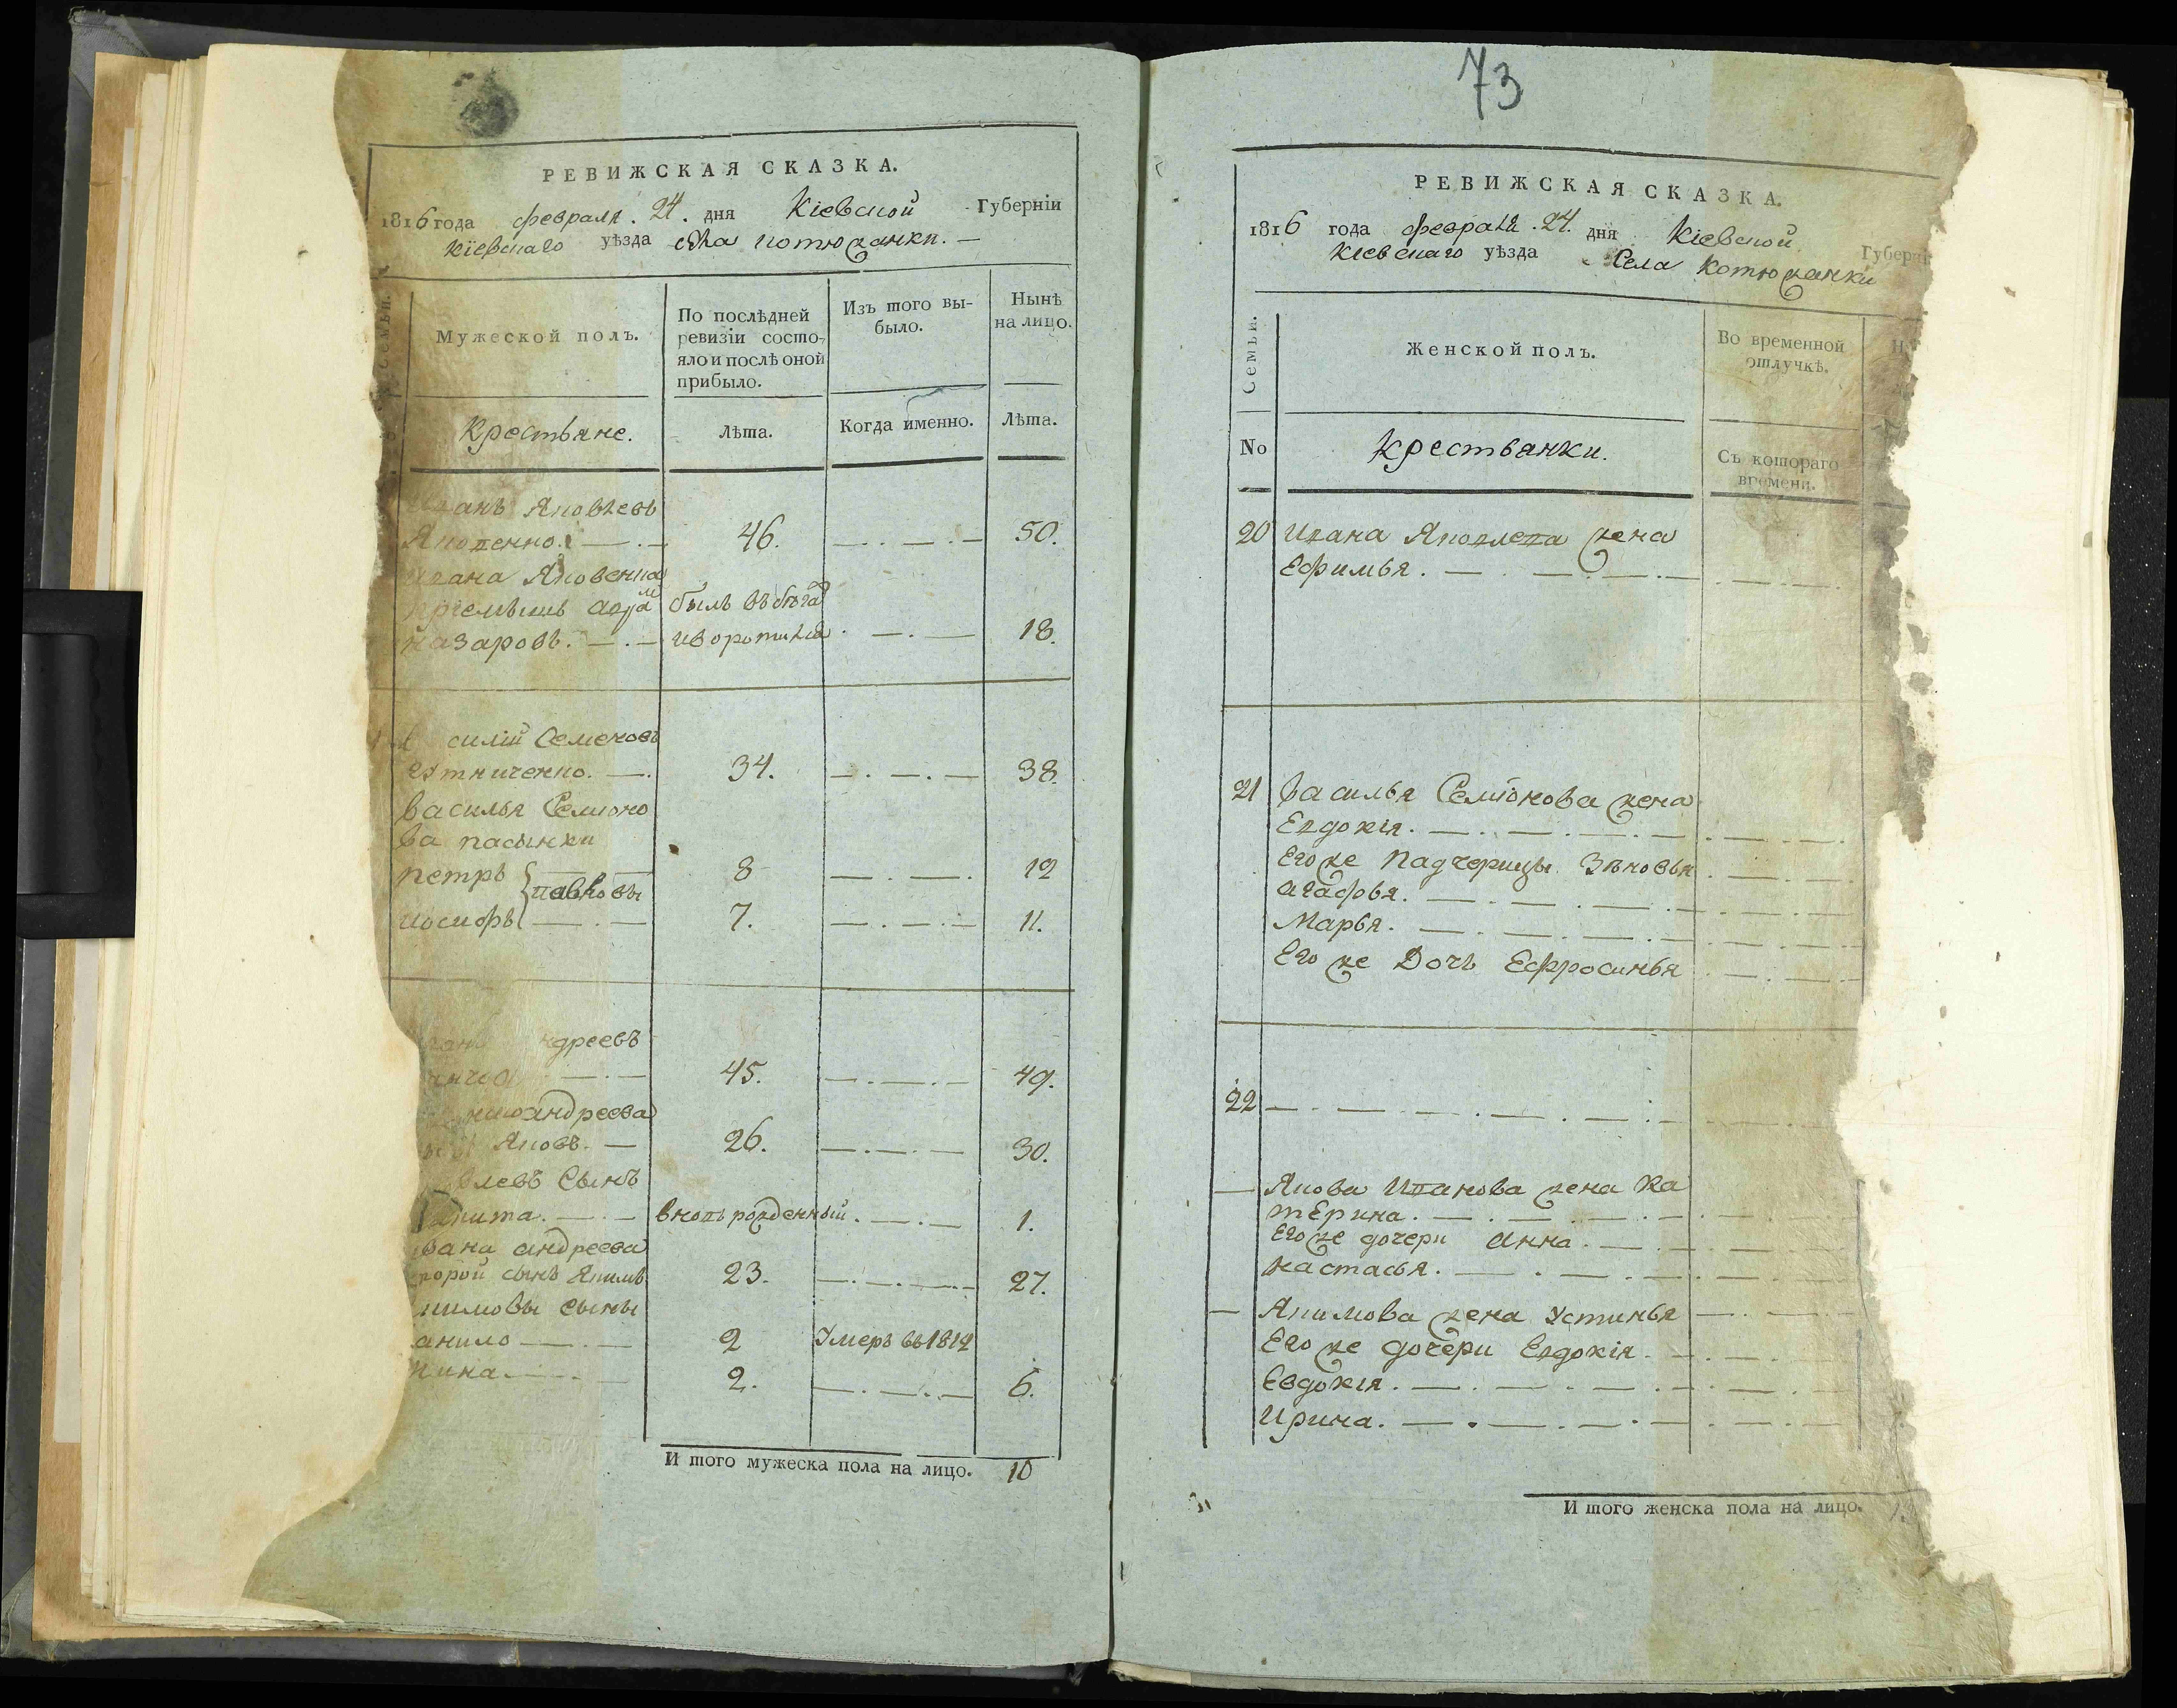 РЕВИЖСКАЯ СКАЗКА.
1816 года февраля. 24. дня Кіевской Губерніи
Кіевскаго уѣзда села Котюжанки. —
Семьи.
Мужеской полъ.
По послѣдней ревизіи состо-
яло и послѣ оной прибыло.
Изъ того вы-
было.
Нынѣ
на лицо.
Крестьяне.
Лѣта.
Когда именно.
Лѣта.
Иванъ Яковлевъ
Яковенко. 46. 50.
Ивана Яковенка
пріемышъ былъ въ бѣгах
Назаровъ. и воротился 18.
силій Семеновъ
34. 38.
Василья Семіоно
ва пасынки
Петръ 8 12
Павловы
Иосифъ 7. 11.
ндреевъ
45. 49.
Андреева
Яковъ. — 26. 30.
влевъ Сынъ
кита. — вновь рожденный. 1.
вана Андреева
торой сынъ Якимъ 23. 27.
кимовы сыны
анило 2 Умеръ въ 1812
2. 6.
И того мужеска пола на лицо. 10
73
РЕВИЖСКАЯ СКАЗКА.
1816 года февраля. 24. дня Кіевской Губерні
Кіевскаго уѣзда Села Котюжанки
Семьи.
Женской полъ.
Во временной
отлучкѣ.
No
Крестьянки.
Съ котораго
времени.
20 Ивана Яковлева жена
Ефимья.
21 Василья Семіонова жена
Евдокія.
Его же Падчерицы Зѣновья
Агафья.
Марья.
Его же Дочь Ефросинья
22
— Якова Иванова жена Ка
терина.
Его же дочери Анна.
Настасья.
— Якимова жена Устинья
Его же дочери Евдокія.
Евдокія.
Ирина.
И того женска пола на лицо.